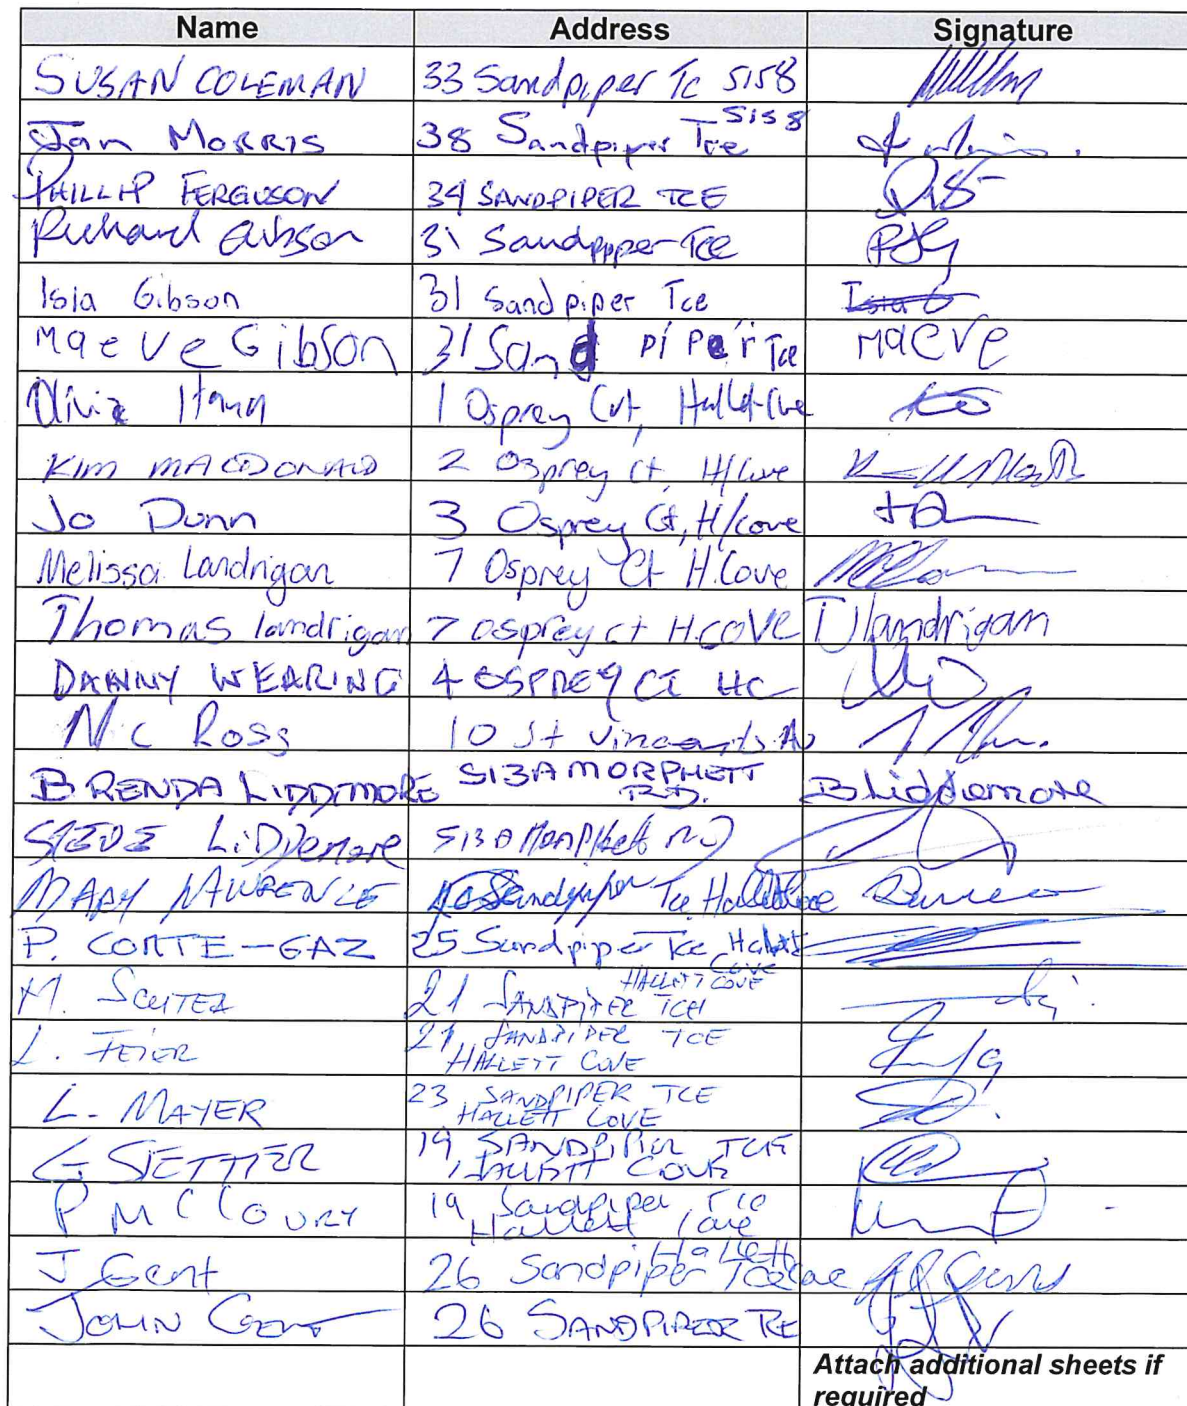 Name Address Signature
SUSAN COLEMAN 33 Sandpiper Tc 5158
Jan MORRIS 38 Sandpiper Tce 5158
PHILLIP FERGUSON 34 SANDPIPER TCE
Richard Gibson 31 Sandpiper Tce
Isla Gibson 31 Sandpiper Tce Isla G
Maeve Gibson 31 Sandpiper Tce Maeve
Olivia 1 Osprey Crt, Hallet Cve
KIM MACDONALD 2 Osprey Ct, H/Cove
Jo Dunn 3 Osprey Ct, H/cove
Melissa Landrigan 7 Osprey Ct H.Cove
Thomas landrigan 7 osprey ct H.COVE T landrigan
DANNY WEARING 4 OSPREY CT HC
N.C Ross 10 St Vincents Av
BRENDA LIDDIMORE 513A MORPHETT RD. B Liddemore
STEVE LiDDemore 513A Morphett RD
MARY LAWRENCE Sandpiper Tce Hallett Cove
P. CORTE-GAZ 25 Sandpiper Tce Hallett Cove
M. 21 SANDPIPER TCE HALLETT COVE
L. FEIER 21 SANDPIPER TCE
HALLETT COVE
L. MAYER 23 SANDPIPER TCE
HALLETT COVE
G 19 SANDPIPER TCE
HALLETT COVE
P MCCOURY 19 Sandpiper Tce
Hallett Cove
J Gent 26 Sandpiper Tce Hallett Cove
JOHN GENT 26 SANDPIPER TCE
Attach additional sheets if
required